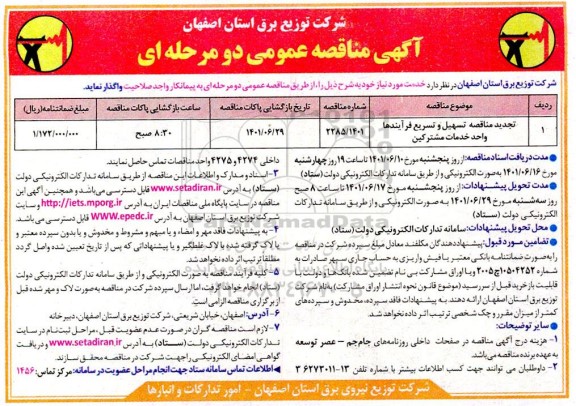 شرکت توزیع برق استان اصفهان
آگهی مناقصه عمومی دو مرحله ای
شرکت توزیع برق استان اصفهان در نظر دارد خدمت مورد نیاز خود به شرح ذیل را، از طریق مناقصه عمومی دو مرحله ای به پیمانکار واجد صلاحیت واگذار نماید.
ردیف موضوع مناقصه شماره مناقصه تاریخ بازگشایی پاکات مناقصه ساعت بازگشایی پاکات مناقصه مبلغ ضمانتنامه (ریال)
۱ تجدید مناقصه تسهیل و تسریع فرآیندها واحد خدمات مشترکین ۲۲۸۵/۱۴۰۱ ۱۴۰۱/۰۶/۲۹ ۸:۳۰ صبح ۱/۱۷۲/۰۰۰/۰۰۰
مدت دریافت اسناد مناقصه: از روز پنجشنبه مورخ ۱۴۰۱/۰۶/۱۰ تا ساعت ۱۹ روز چهارشنبه
مورخ ۱۴۰۱/۰۶/۱۶ به صورت الکترونیکی و از طریق سامانه تدارکات الکترونیکی دولت (ستاد)
مدت تحویل پیشنهادات: از روز پنجشنبه مورخ ۱۴۰۱/۰۶/۱۷ تا ساعت ۸ صبح
روز سه شنبه مورخ ۱۴۰۱/۰۶/۲۹ به صورت الکترونیکی و از طریق سامانه تدارکات
الکترونیکی دولت (ستاد)
محل تحویل پیشنهادات: سامانه تدارکات الکترونیکی دولت (ستاد)
تضامین مورد قبول: پیشنهاددهندگان مکلفند معادل مبلغ سپرده شرکت در مناقصه
را به صورت ضمانتنامه بانکی معتبر یا فیش واریزی به حساب جاری سپهر صادرات به
شماره
قابلیت بازخرید قبل از سررسید (موضوع قانون نحوه انتشار اوراق مشارکت) به نام شرکت
توزیع برق استان اصفهان ارائه دهند. به پیشنهادات فاقد سپرده، مخدوش و سپرده های
کمتر از میزان مقرر و چک شخصی ترتیب اثر داده نخواهد شد.
سایر توضیحات:
۱- هزینه درج آگهی مناقصه در صفحات داخلی روزنامه های جام جم - عصر توسعه
به عهده برنده مناقصه می باشد.
۲- داوطلبان می توانند جهت کسب اطلاعات بیشتر با شماره تلفن ۱۳-۳۶۲۷۳۰۱۱
داخلی ۴۲۷۴ و ۴۲۷۵ واحد مناقصات تماس حاصل نمایند.
۳- اسناد و مدارک و اطلاعات این مناقصه از طریق سامانه تدارکات الکترونیکی دولت
(ستاد) به آدرس www.setadiran.ir قابل دسترسی می باشد و همچنین آگهی این
مناقصه در سایت پایگاه ملی مناقصات ایران به آدرس http://iets.mporg.ir و سایت
شرکت توزیع برق استان اصفهان به آدرس WWW.EPEDC.ir قابل دسترسی می باشد.
۴- به پیشنهادات فاقد مهر و امضاء و یا مبهم و مشروط و مخدوش و یا بدون سپرده معتبر و
یا لاک گرفته شده یا بلاک غلطگیر و یا پیشنهاداتی که پس از تاریخ تعیین شده واصل گردد
مطلقاً ترتیب اثر داده نخواهد شد.
۵- کلیه فرآیند مناقصه به صورت الکترونیکی و از طریق سامانه تدارکات الکترونیکی دولت
(ستاد) انجام خواهد گرفت، اما ارسال سپرده شرکت در مناقصه به صورت لاک و مهر شده قبل
از برگزاری مناقصه الزامی است.
۶- آدرس: اصفهان، خیابان شریعتی، شرکت توزیع برق استان اصفهان، دبیرخانه
۷- لازم است مناقصه گران در صورت عدم عضویت قبل، مراحل ثبت نام در سایت
تدارکات الکترونیکی دولت (ستاد) به آدرس www.setadiran.ir و دریافت
گواهی امضای الکترونیکی را جهت شرکت در مناقصه محقق سازند.
اطلاعات تماس سامانه ستاد جهت انجام مراحل عضویت در سامانه: مرکز تماس: ۱۴۵۶
شرکت توزیع نیروی برق استان اصفهان - امور تدارکات و انبارها